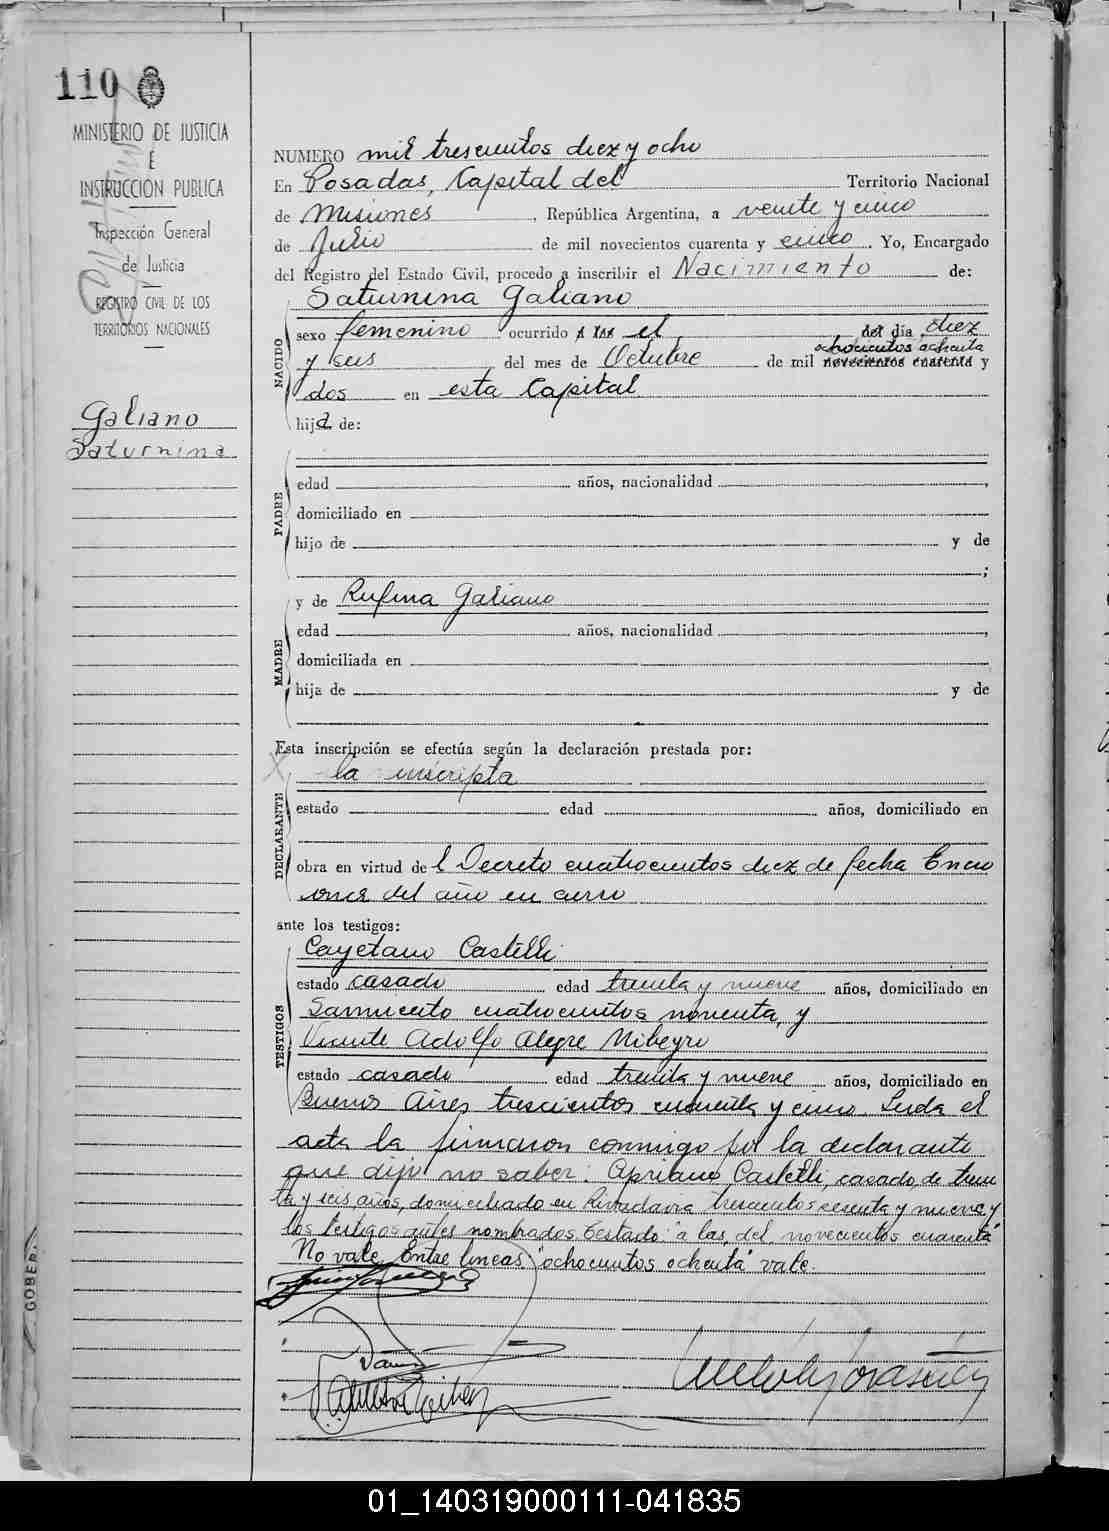 110
MINISTERIO DE JUSTICIA
E
INSTRUCCION PUBLICA
Inspección General
de Justicia
REGISTRO CIVIL DE LOS
TERRITORIOS NACIONALES
Galiano
Saturnina
NUMERO mil trescientos diez y ocho
En Posadas, Capital del Territorio Nacional
de Misiones, República Argentina, a veinte y cinco
de Julio de mil novecientos cuarenta y cinco. Yo, Encargado
del Registro del Estado Civil, procedo a inscribir el Nacimiento de:
Saturnina Galiano
NACIDO
sexo femenino ocurrido a las el del día diez
ochocientos ochenta
y seis del mes de Octubre de mil novecientos cuarenta y
dos en esta Capital
hija de:
PADRE
edad años, nacionalidad ,
domiciliado en
hijo de y de
;
MADRE
y de Rufina Galiano
edad años, nacionalidad ,
domiciliada en
hija de y de
Esta inscripción se efectúa según la declaración prestada por:
la inscripta
DECLARANTE
estado edad años, domiciliado en
obra en virtud de l Decreto cuatrocientos diez de fecha Enero
once del año en curso
ante los testigos:
TESTIGOS
Cayetano Castelli
estado casado edad treinta y nueve años, domiciliado en
Sarmiento cuatrocientos noventa, y
Vicente Adolfo Alegre Ribeyro
estado casado edad treinta y nueve años, domiciliado en
Buenos Aires trescientos cuarenta y cinco. Leida el
acta la firmaron conmigo por la declarante
que dijo no saber: Cipriano Castelli, casado, de trein
ta y seis años, domiciliado en Rivadavia trescientos sesenta y nueve y
los testigos antes nombrados. Testado: "a las, del, novecientos cuarenta"
No vale. Entre lineas "ochocientos ochenta" vale.
GOBER
01_140319000111-041835